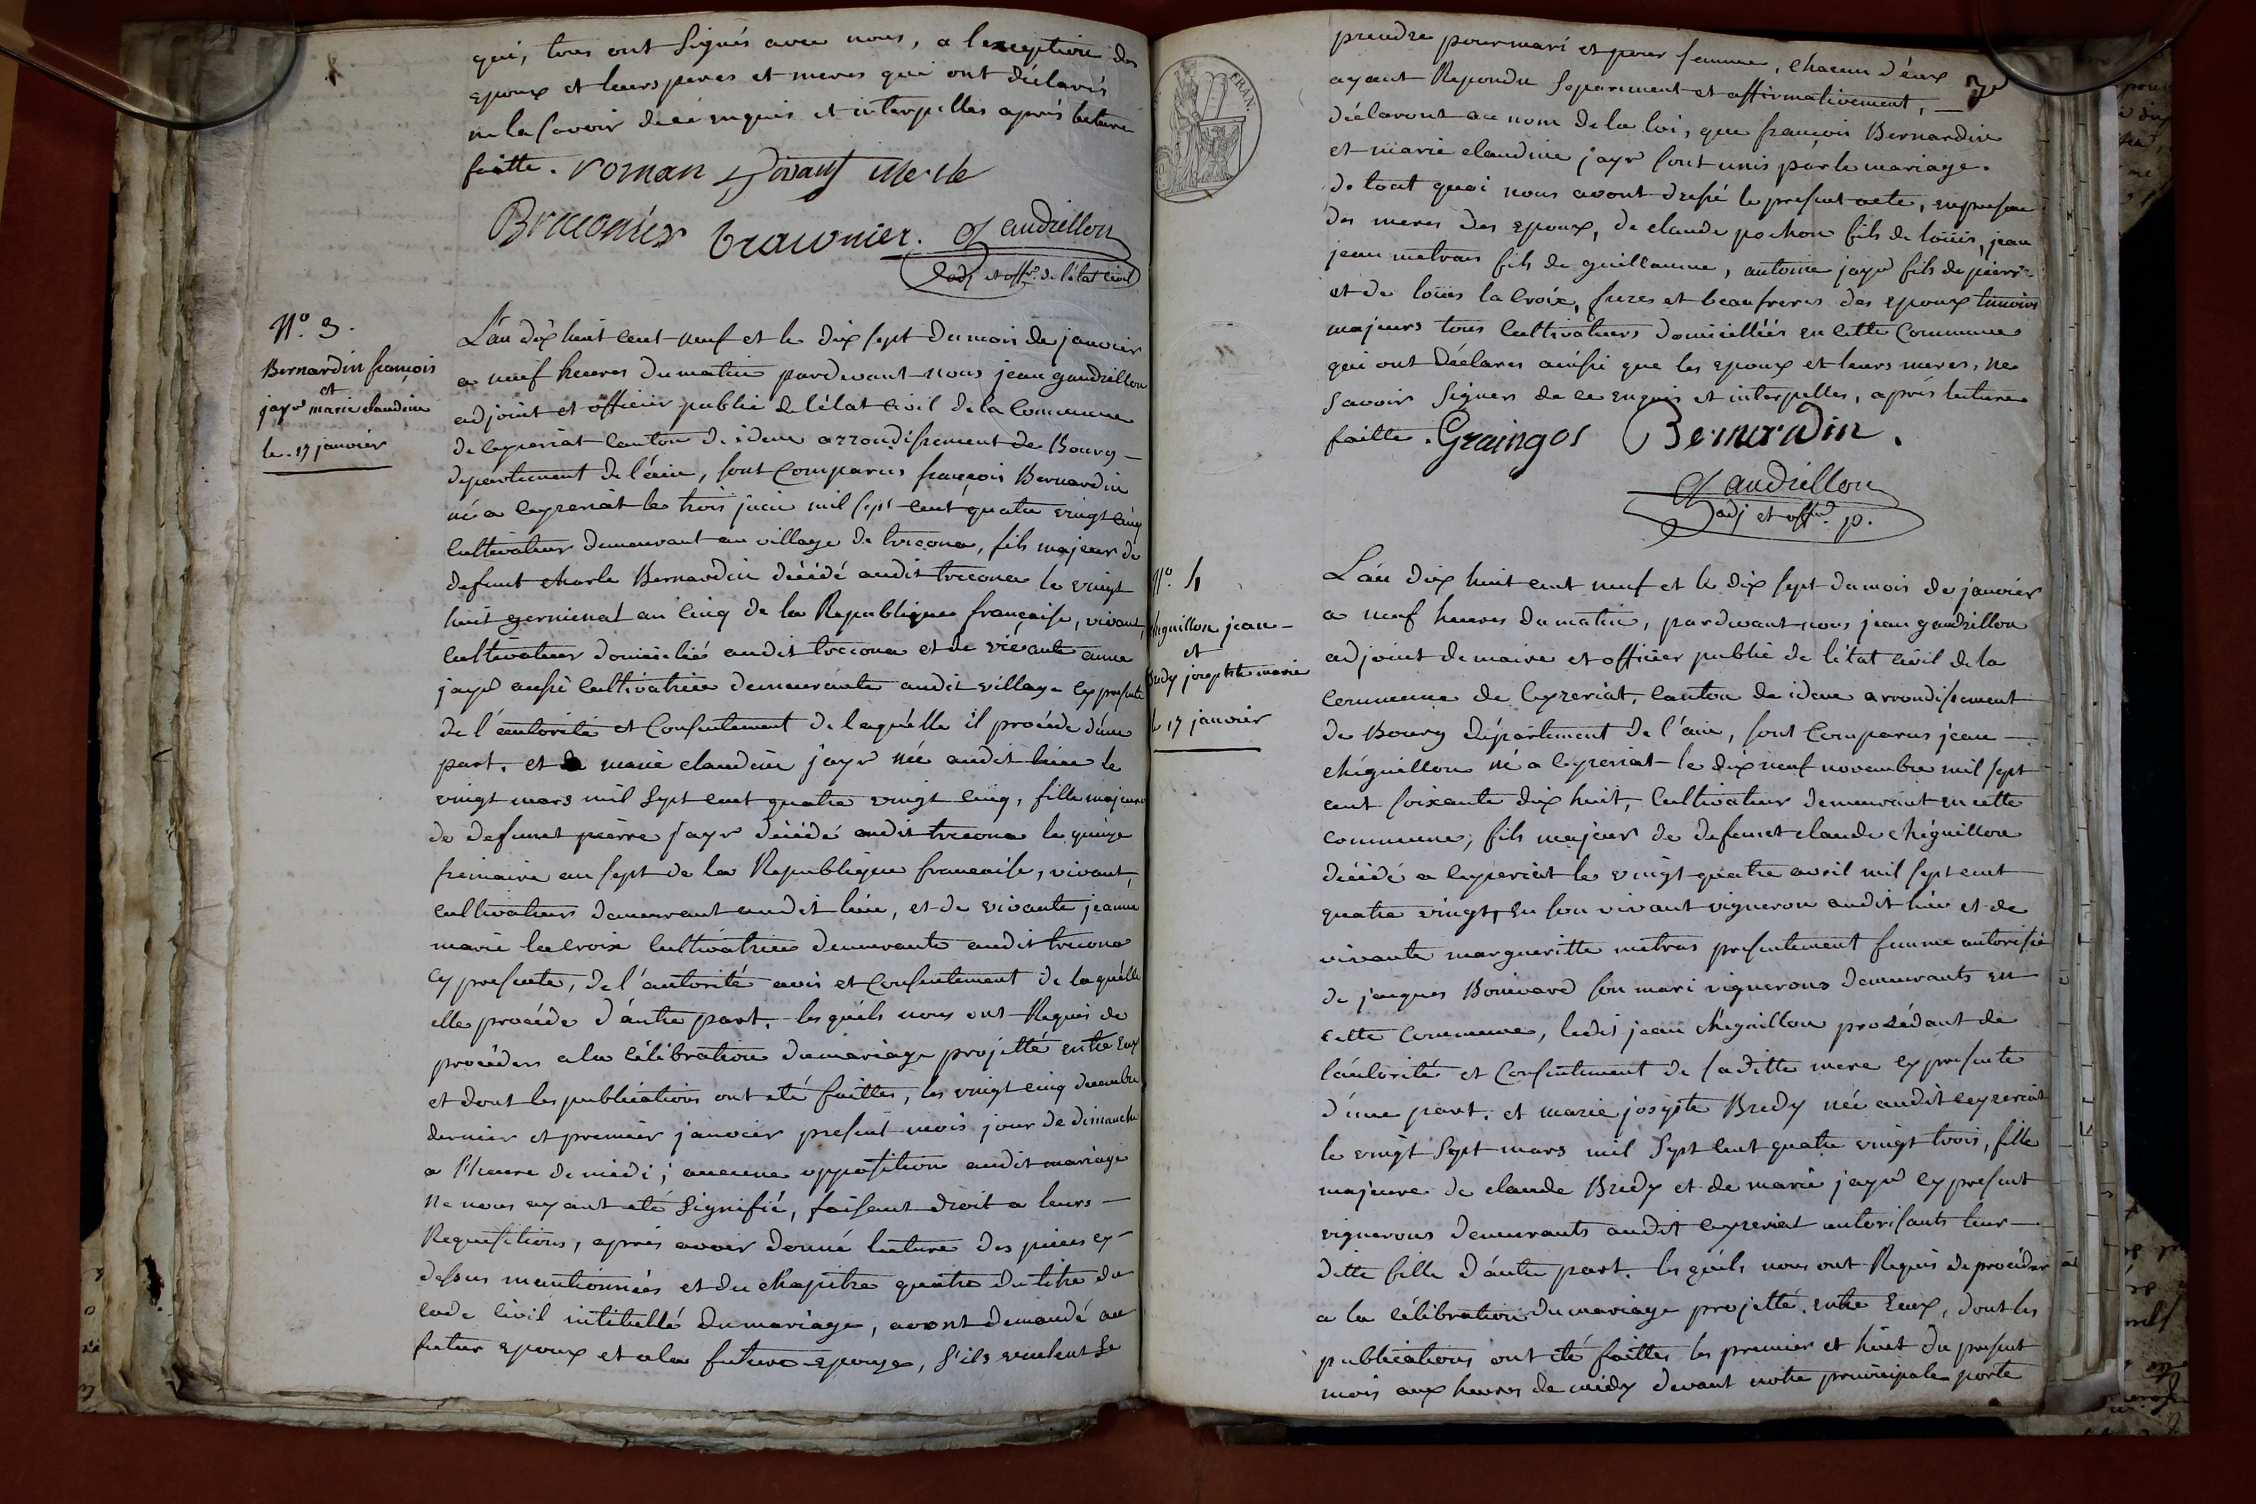 qui, tous ont signés avec nous, a l'exception des
epoux et leurs peres et meres qui ont déclarés
ne la savoir de ce enquis et interpellés après lecture
faitte. roman
Braconnier braconier. Gaudrillon
adj et offr. de l'état civil
N.º 3.
Bernardin françois
et
jayr marie claudine
le. 17 janvier
L'an dix huit cent neuf et le dix sept du mois de janvier
a neuf heures du matin pardevant nous jean gaudrillon
adjoint et officier public de l'état civil de la Commune
de ceyzeriat canton d'idem arrondissement de Bourg
departement de l'ain, sont Comparus françois Bernardin
né a ceyzeriat le trois juin mil sept cent quatre vingt cinq
Cultivateur demeurant au village de trecona, fils majeur de
defunt charle Bernardin décédé audit trecona le vingt
huit germinal an cinq de la Republique française, vivant,
cultivateur domicilié audit trecona et de vivante anne
jayr aussi cultivatrice demeurante audit village cy presente
de l'autorité et Consentement de laquelle il procéde d'une
part. et marie claudine jayr née audit lieu le
vingt mars mil sept cent quatre vingt cinq, fille majeure
de defunct pierre jayr décédé audit trecona le quinze
frimaire an sept de la Republique francaise, vivant,
cultivateur demeurant audit lieu, et de vivante jeanne
marie lacroix cultivatrice demeurante audit trecona
cy presente, de l'autorité avis et Consentement de laquelle
elle procéde d'autre part. lesquéls nous ont Requis de
procéder a la célébration du mariage projetté entre Eux
et dont les publications ont eté faittes, les vingt cinq decembre
dernier et premier janvier present mois jour de dimanche
a l'heure de midi; aucune opposition audit mariage
ne nous ayant eté signifié, faisant droit a leurs
Requisitions, après avoir donné lecture des pieces cy
dessus mentionnées et du chapitre quatre du titre du
code Civil intitullé du mariage, avont demandé au
futur epoux et a la future epouze, s'ils veulent se
prendre pour mari et pour femme, chacun d'eux
ayant Repondu separement et affirmativement,
déclaront au nom de la loi, que françois Bernardin
et marie claudine jayr sont unis par le mariage.
de tout quoi nous avont dressé le present acte, en presence
des meres des epoux, de claude pochon fils de loüis, jean
jean metras fils de guillaume, antoine jayr fils de pierre
et de loüis la croix, freres et beaufreres des epoux temoins
majeurs tous Cultivateurs domicilliés en cette Commune
qui ont Déclarés ainsi que les epoux et leurs meres, ne
savoir signer de ce enquis et interpellés, après lecture
faitte. Graingos Bernardin.
Gaudrillon
adj et offr. p.
N.º 4
chiguillon jean
et
Bredy josephte marie
le 17 janvier
L'an dix huit cent neuf et le dix sept du mois de janvier
a neuf heures du matin, pardevant nous jean gaudrillon
adjoint de maire et officier public de l'état civil de la
commune de ceyzeriat, canton de idem arrondissement
de Bourg département de l'ain, sont Comparus jean
chiguillon né a ceyzeriat le dix neuf novembre mil sept
cent soixante dix huit, Cultivateur demeurant en cette
commune, fils majeur de defunct claude chiguillon
décédé a ceyzeriat le vingt quatre avril mil sept cent
quatre vingt, en son vivant vigneron audit lieu et de
vivante margueritte metras presentement femme autorisée
de jacques Bonivard son mari vignerons demeurants en
cette commune, ledit jean chiguillon procédant de
l'autorité et Consentement de saditte mere cy presente
d'une part. et marie josephte Bredy née audit ceyzeriat
le vingt sept mars mil sept cent quatre vingt trois, fille
majeure de claude Bredy et de marie jayr cy present
vignerons demeurants audit ceyzeriat autorisants leur
ditte fille d'autre part. lesquéls nous ont Requis de procéder
a la célébration du mariage projetté entre Eux, dont les
publications ont eté faittes les premier et huit du present
mois aux heures de midy devant notre principale porte